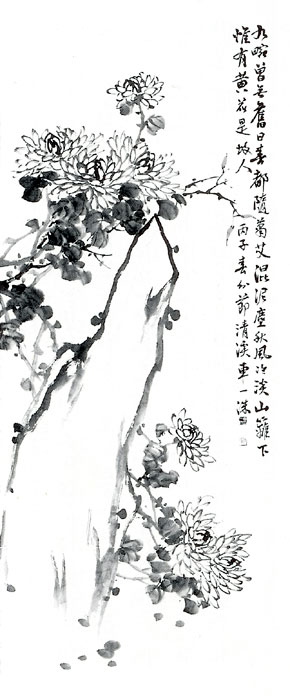 九畹曾无舊日春都隨蕭艾混泥塵秋風冷淡山籬下
惟有黃花是故人
丙子春分節清溪車一洙